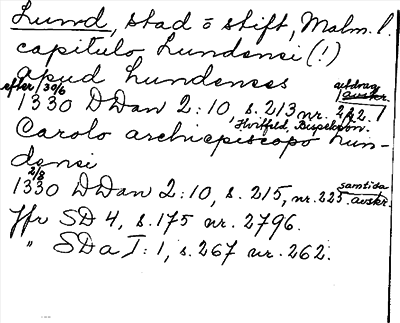 Lund, stad o stift, Malm. l.
capitulo Lundensi (!)
apud Lundenses
efter 30/6 utdrag avskr.
1330 DDan 2:10, s. 213 nr. 222. /
Hvitfeld, Bispekrøn.
Carolo archiepiscopo Lun-
densi
2/8 samtida
1330 DDan 2:10, s. 215, nr. 225. avskr.
Jfr SD 4, s. 175 nr. 2796.
" SDa I:1, s. 267 nr. 262.